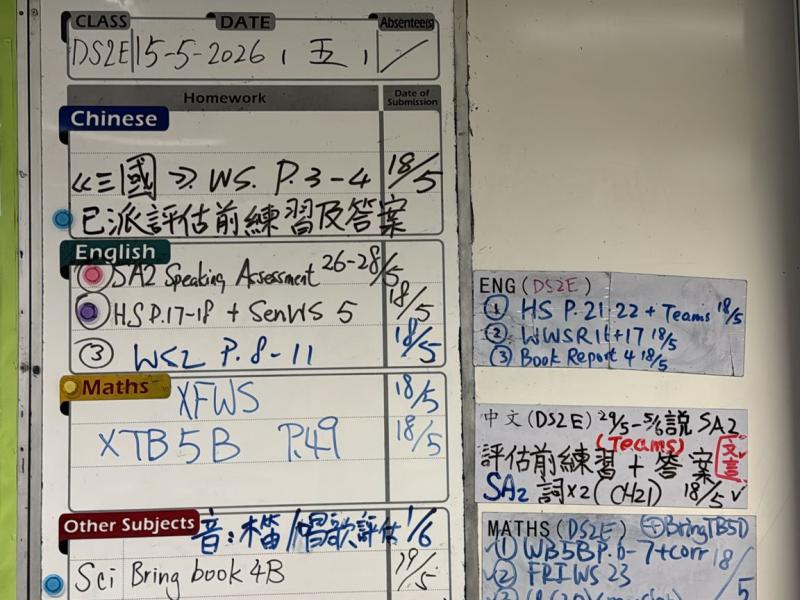 CLASS DATE Absentee(s)
DS2E 15-5-2026 , 五 , /
Homework Date of Submission
Chinese
《三國》 WS. P.3-4 18/5
已派評估前練習及答案
English
SA2 Speaking Assessment 26-28/5
HS P.17-18 + SenWS 5 18/5
③ WS2 P.8-11 18/5
Maths
XFWS 18/5
XTB5B P.49 18/5
Other Subjects
音:木笛/唱歌評估 1/6
Sci Bring book 4B 19/5
ENG (DS2E)
① HS P.21-22 + Teams 18/5
② WWSR1 +17 18/5
③ Book Report 4 18/5
中文 (DS2E) 29/5-5/6 說 SA2
(Teams)
評估前練習 + 答案 文言
SA2 詞x2 (CH21) 18/5 ✓
MATHS (DS2E) ⊕ Bring TB5D
① WB5B P.6-7+corr 18/5
② FRI WS 23